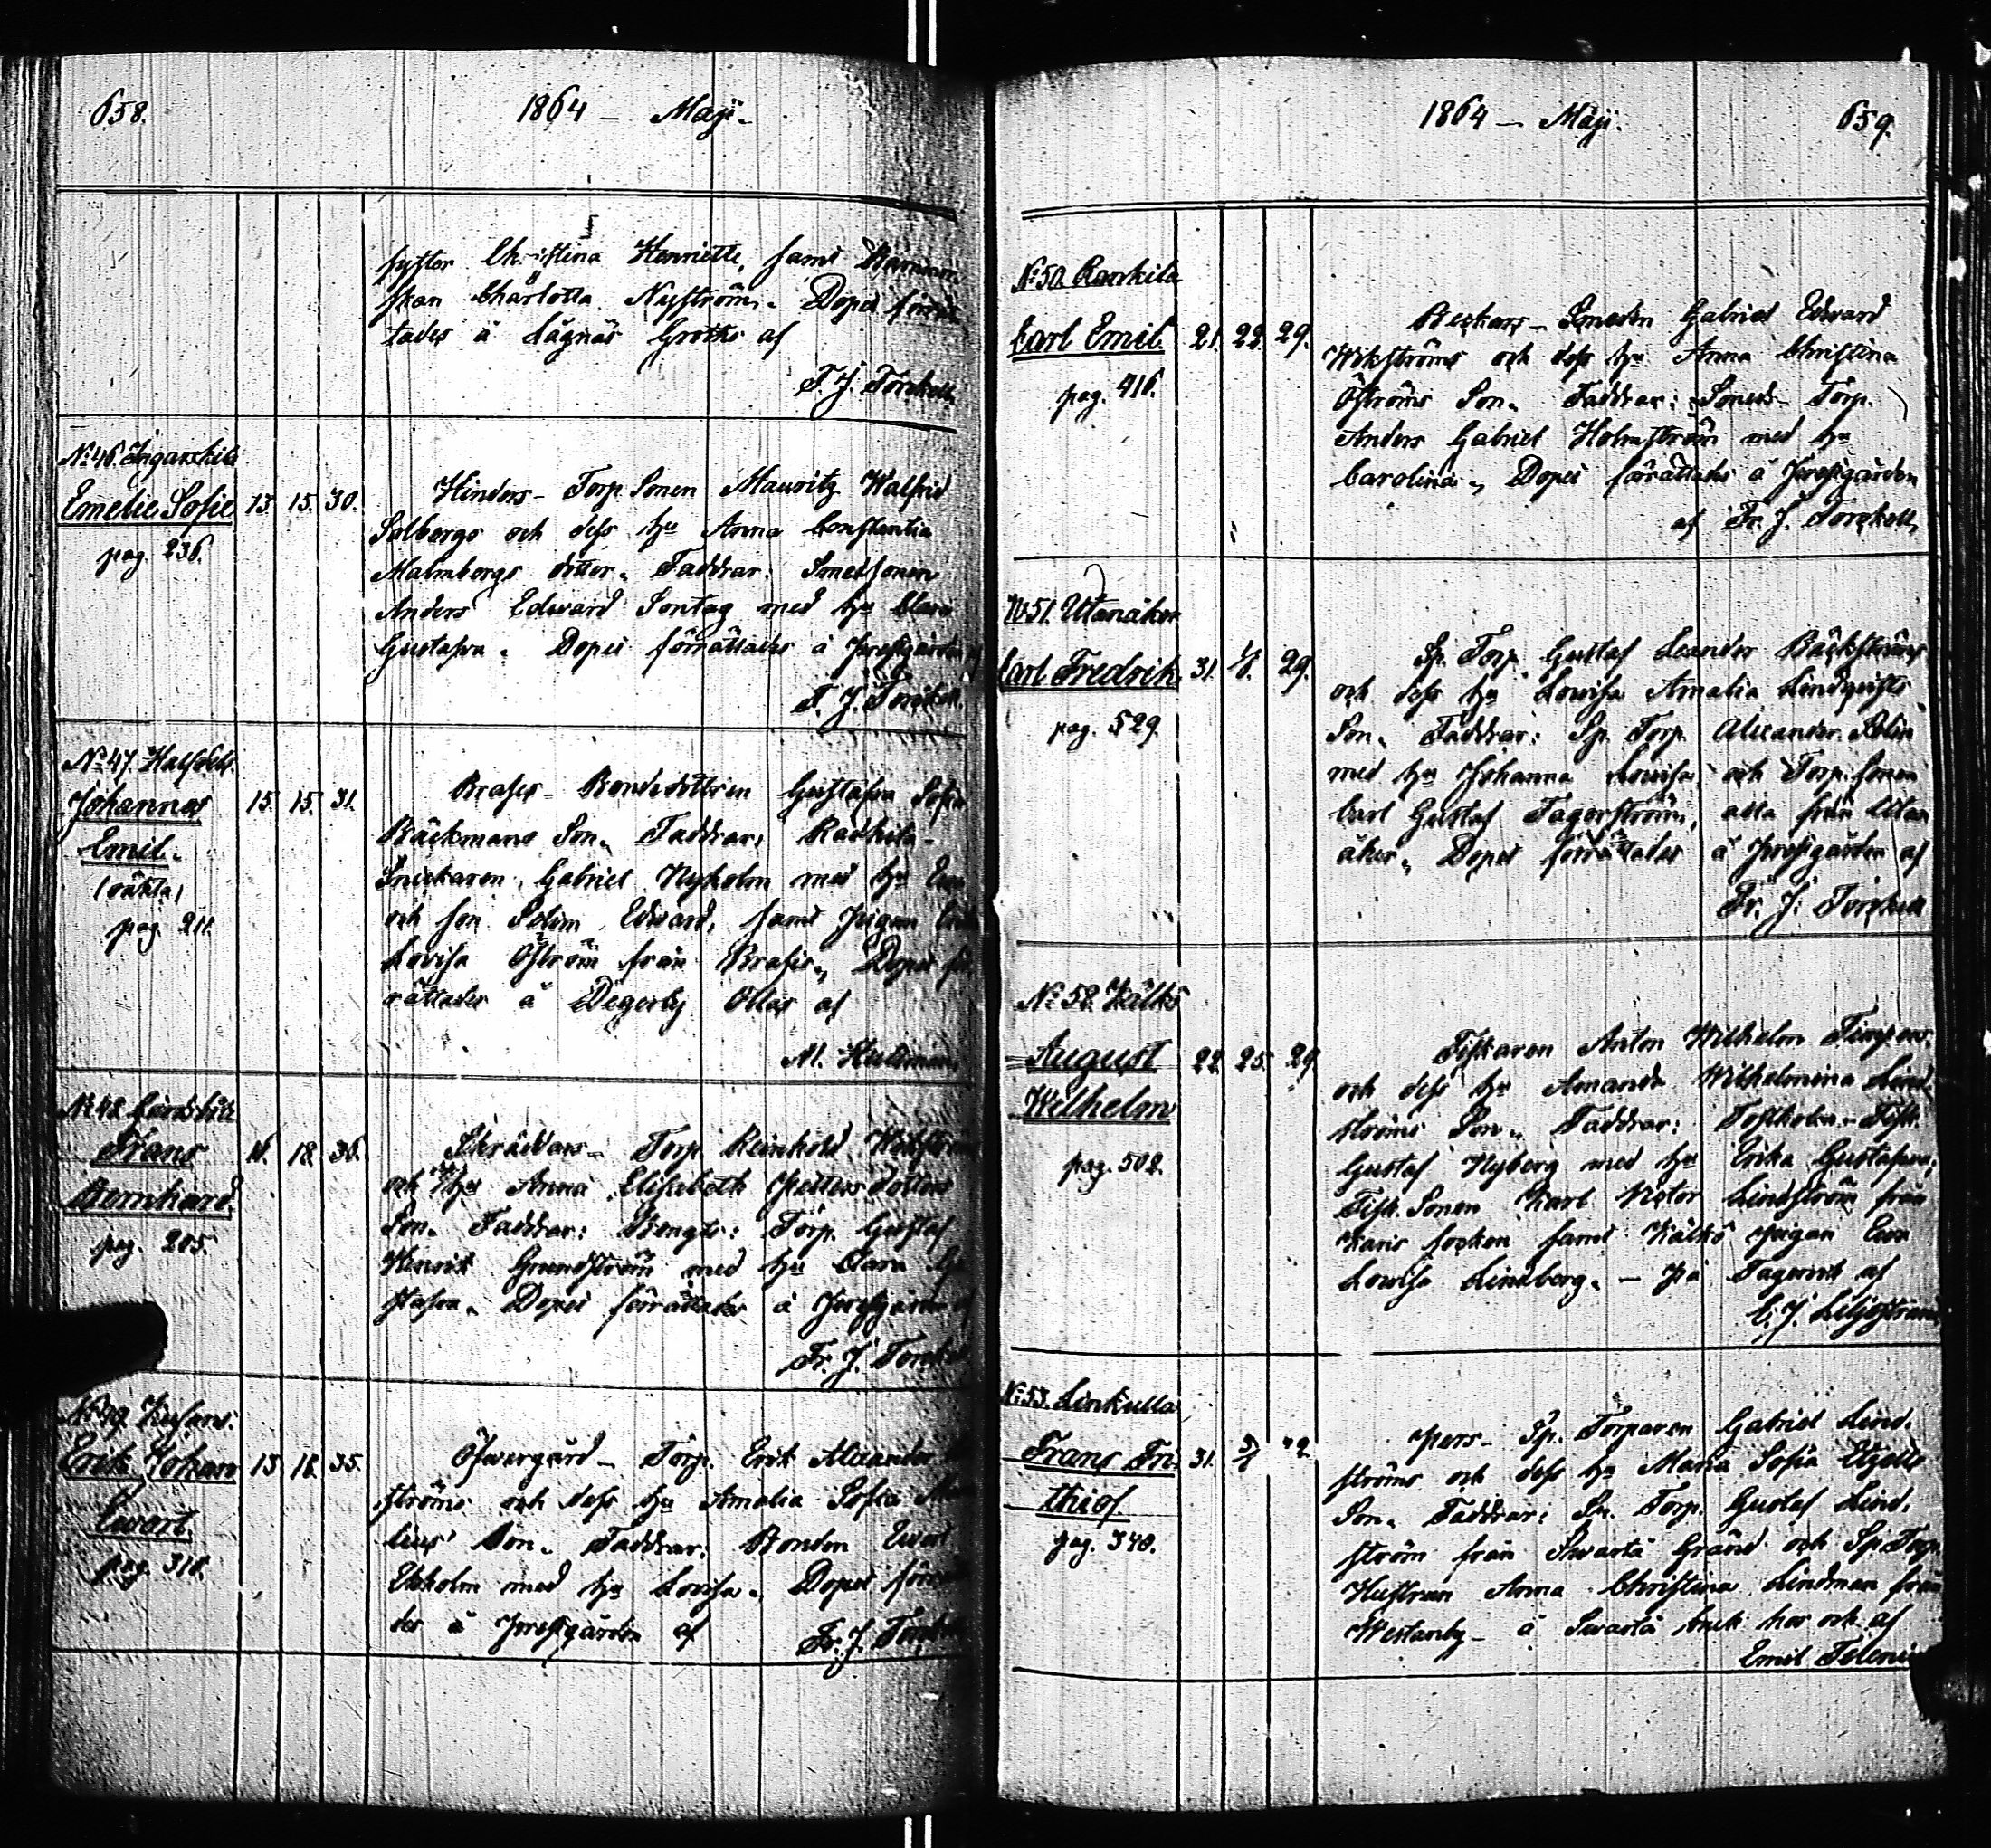 658.
1864 – Maji.
syster Christina Henriette, samt
skan Charlotta Nyström. Dopet förrät
tades å Lågnäs Grotks af
F. J. Torckell
No 46. Ingarskila
Emelie Sofie 13. 15. 30.
pag. 236.
Hinders – Torp. Sonen Mauritz Walfrid
Solbergs och dess hu Anna Constantia
Malmbergs dotter. Faddrar: Smedsonen
Anders Edward Sontag med hu Clara
Gustafva. Dopet förrättades å Prestgården af
F. J. Torckell.
No 47. Halfdels.
Johannes 15. 15. 31.
Emil.
(oäkta)
pag. 211.
Brasis – Bondedottren Gustafva Sofia
Bäckmans Son. Faddrar: Rackila
Snickaren Gabriel Nyholm med hu Eva
och son Selim Edward, samt Pigan
Lovisa Öström från Brasis. Dopet för
rättades å Degerby Ollas af
M. Hultman
No 48.
Frans 16. 18. 36.
Bernhard.
pag. 205.
Skräddars – Torp. Reinhold
och hu Anna Elisabeth Petters dotters
Son. Faddrar: Bengts: Torp. Gustaf
Henrik Grundström med hu Clara Gu
stafva. Dopet förrättades å Prestgården af
Fr. J. Torckell
No 49.
Erik Johan 13. 18. 35.
Evert.
pag. 318.
Öfvergård – Torp. Erik Alexander
ströms och dess hu Amalia Sofia
lius' Son. Faddrar: Bonden Evert
Ekholm med hu Lovisa. Dopet förrätta
des å Prestgården af
Fr. J. Torckell
1864 – Maji.
659.
No 50. Rankila
Carl Emil 21. 22. 29.
pag. 416.
Beckars – Smeden Gabriel Edward
Wikströms och dess hu Anna Christina
Öströms Son. Faddrar: Smeds – Torp.
Anders Gabriel Holmström med hu
Carolina. Dopet förrättades å Prestgården
af Fr. J. Torckell
No 51. Utanåker
Carl Fredrik 31. 29.
pag. 529.
Sp. Torp. Gustaf Leander Bäckströms
och dess hu Lovisa Amalia Lindqvists
Son. Faddrar: Sp. Torp. Alexander
med hu Johanna Lovisa och Torp. sonen
Carl Gustaf Fagerström, alla från Utan
åker. Dopet förrättades å Prestgården af
Fr. J. Torckell
No 52. Kälkö
August 22. 25. 29
Wilhelm
pag. 502.
Fiskaren Anton Wilhelm
och dess hu Amanda Wilhelmina Lind
ströms Son. Faddrar: Fisk.
Gustaf Nyberg med hu Erika Gustafva,
Fisk. Sonen Karl Victor Lindström från
Karis socken samt Kälkö Pigan Eva
Lovisa Lindberg. – på Fagervik af
C. J. Liljeström
No 53. Linkulla
Frans Fri- 31. 42
thiof
pag. 348.
Pers – Sp. Torparen Gabriel Lind-
ströms och dess hu Maria Sofia Etzells
Son. Faddrar: Sp. Torp. Gustaf Lind-
ström från Svartå Gränd och Sp. Torp.
Hustrun Anna Christina Lindman från
Westanby – å Svartå bruk har och af
Emil